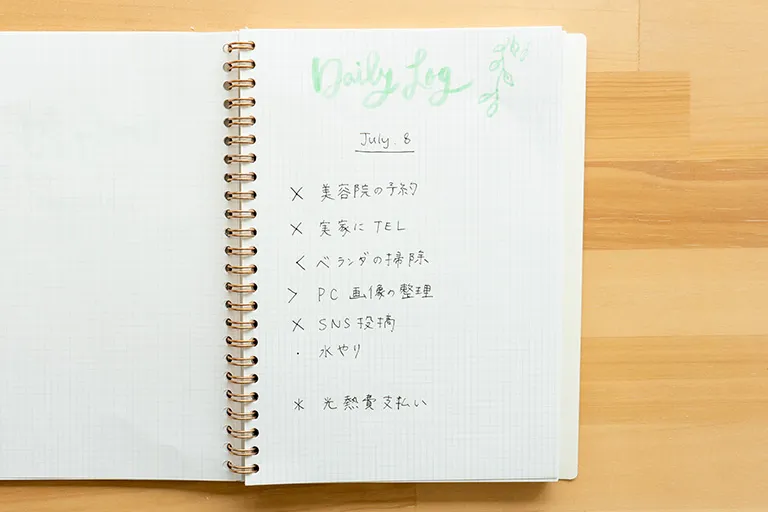 Daily Log
July. 8
× 美容院の予約
× 実家にTEL
< ベランダの掃除
> PC 画像の整理
× SNS 投稿
・ 水やり
* 光熱費支払い